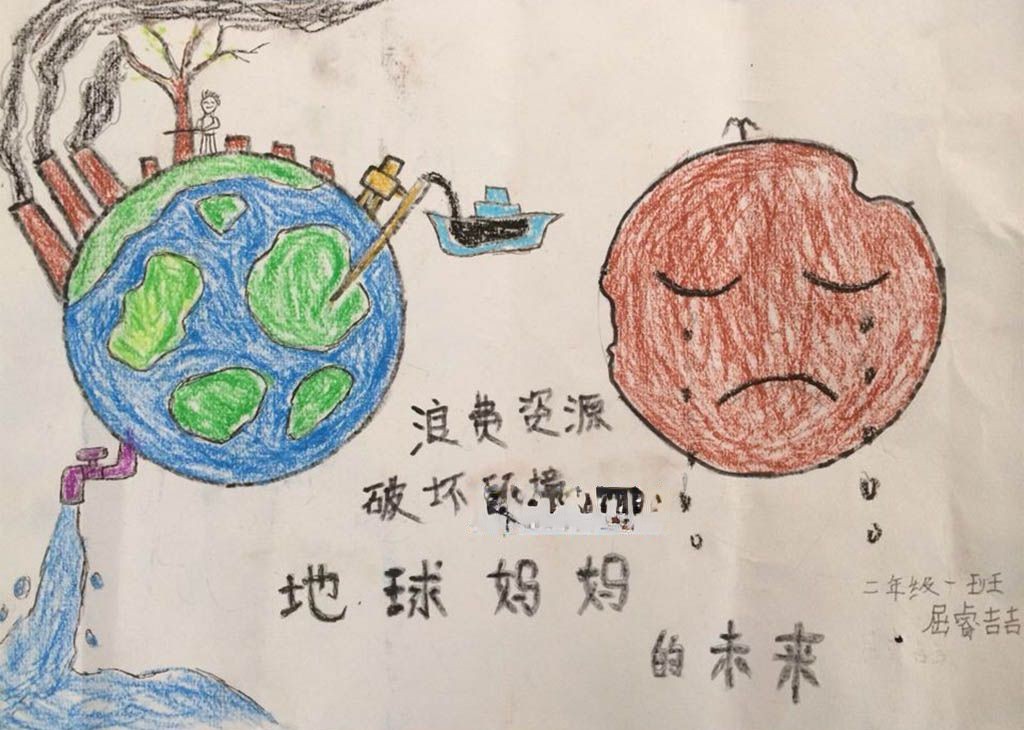 浪费资源
破坏环境
地球妈妈
的未来
二年级一班
屈睿喆